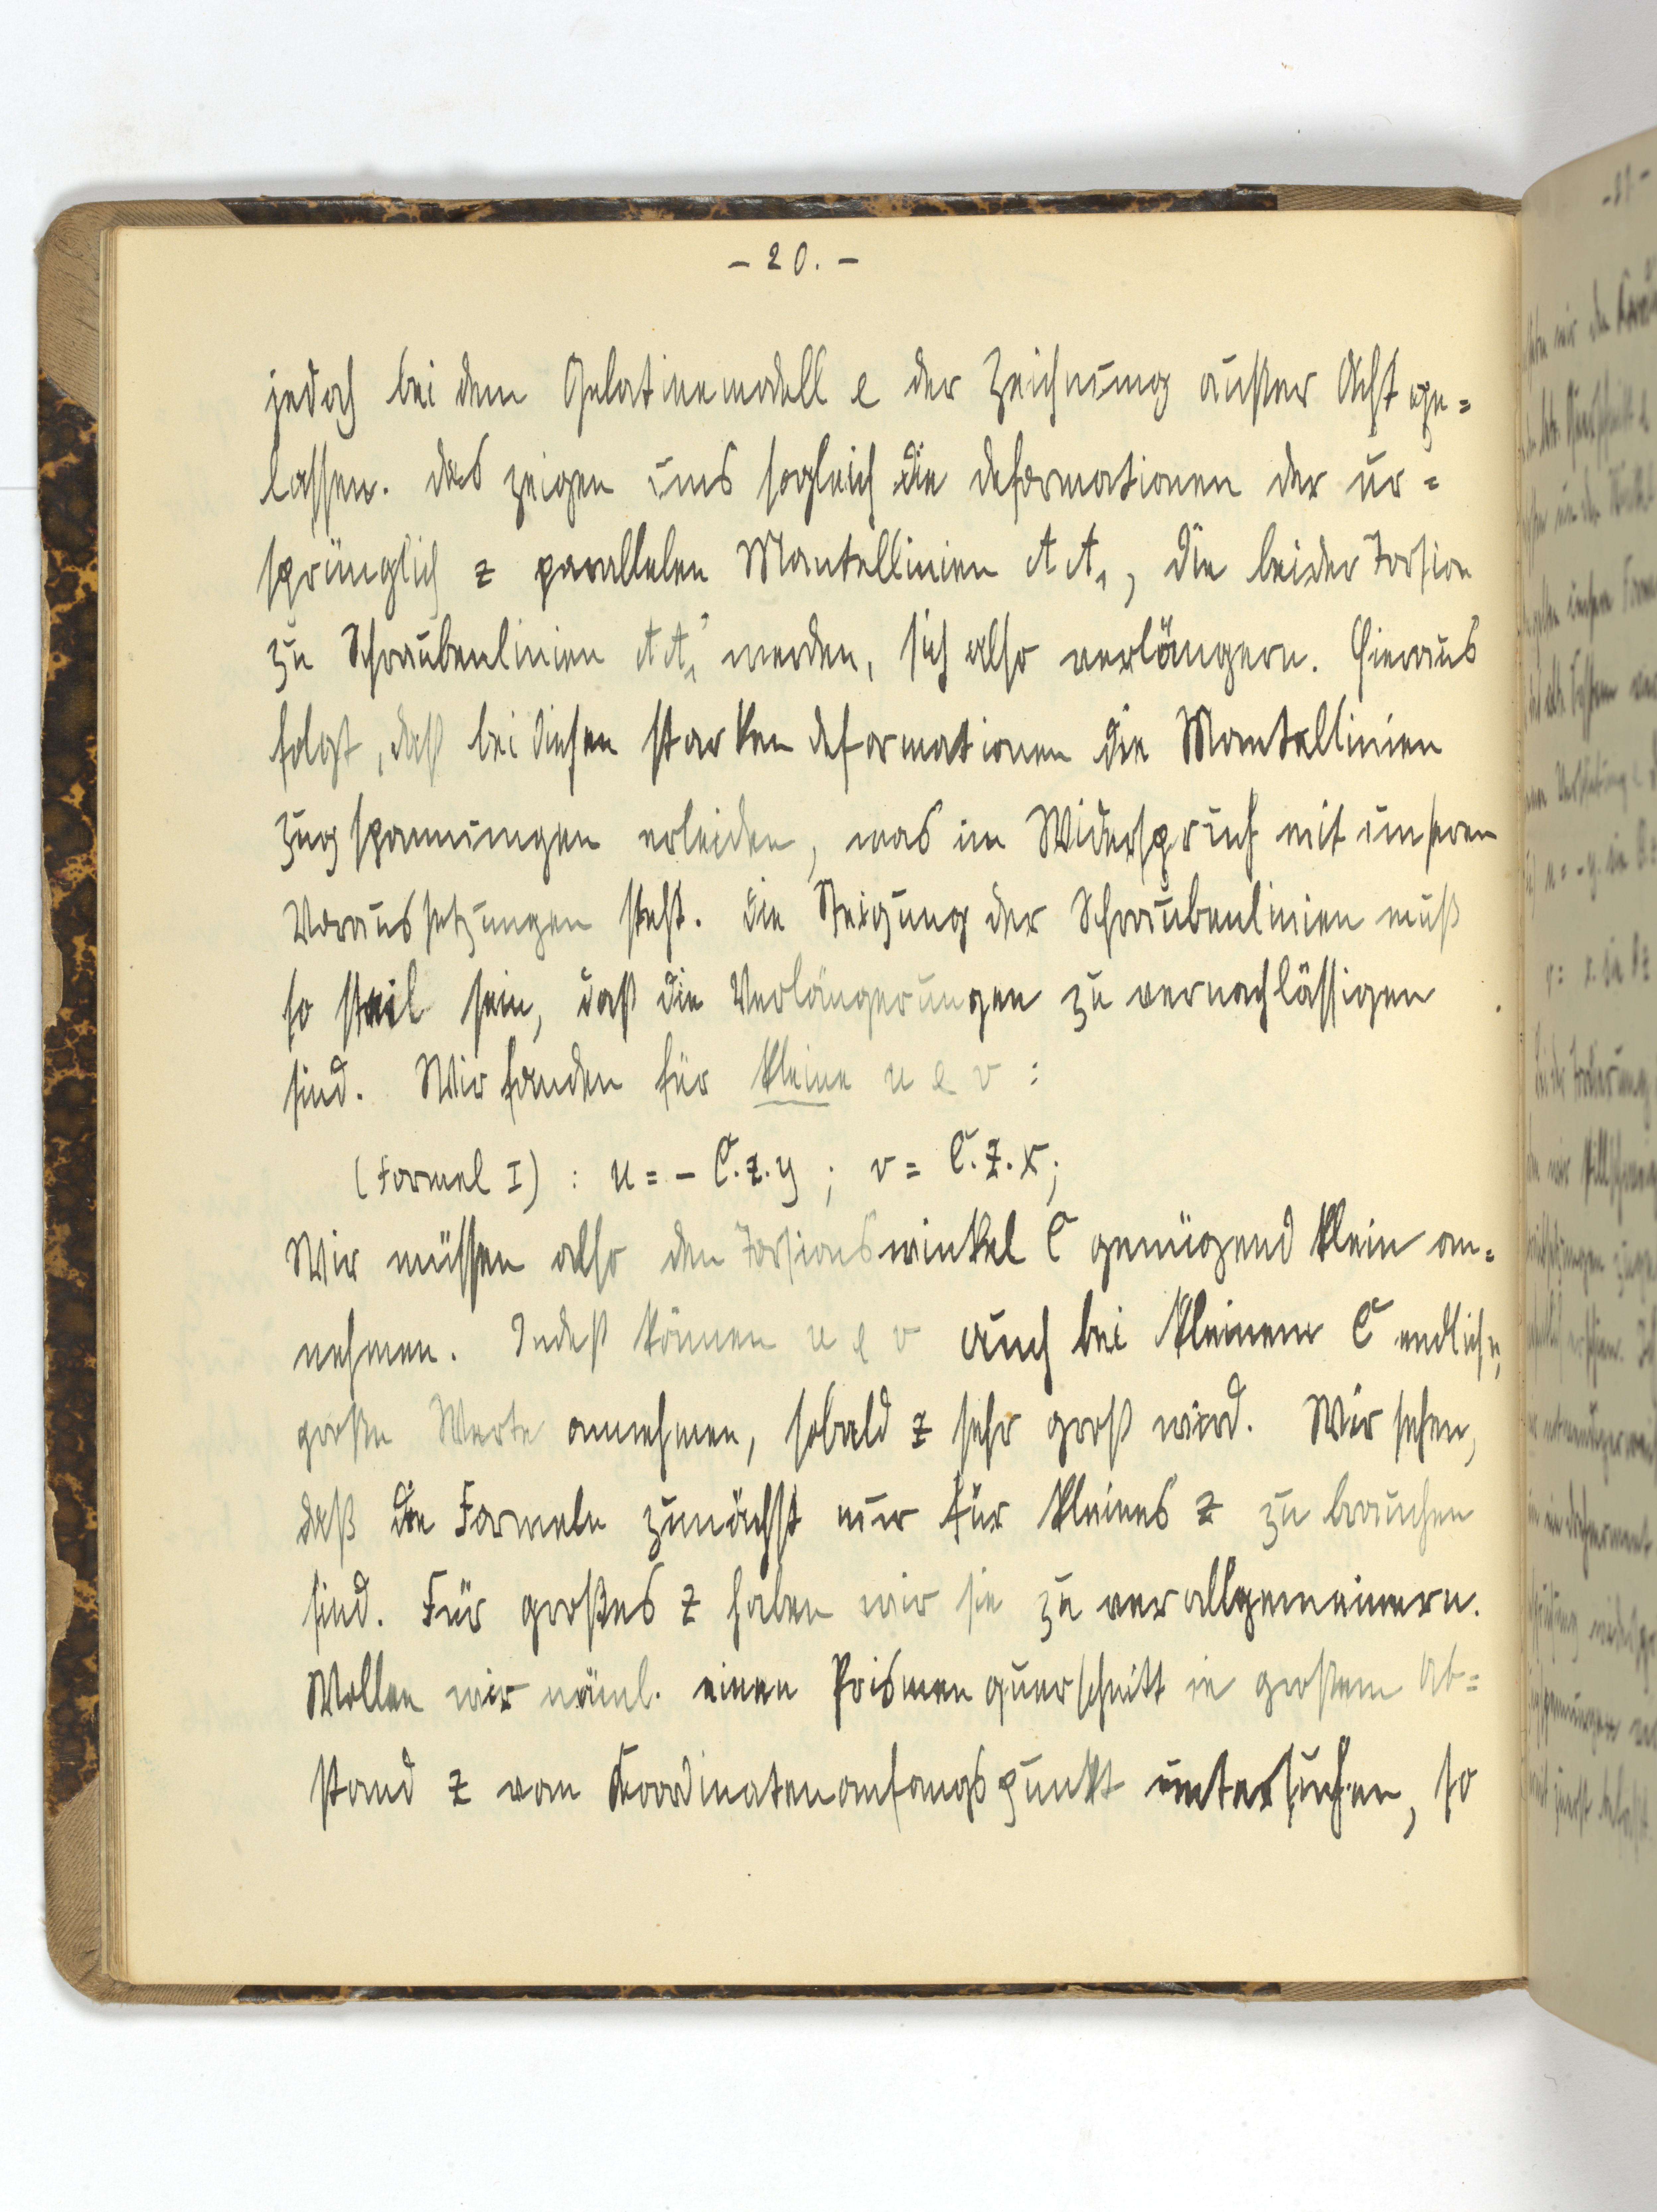 - 20. -
jedoch bei dem Gelatinemodell & der Zeichnung außer Acht ge=
lassen. Das zeigen uns sogleich die Deformationen der ur=
sprünglich z parallelen Mantellinien A A₁, die bei der Torsion
zu Schraubenlinien A A₁' werden, sich also verlängern. Hieraus
folgt, daß bei diesen starken Deformationen die Mantellinien
Zugspannungen erleiden, was im Widerspruch mit unseren
Voraussetzungen steht. Die Steigung der Schraubenlinien muß
so steil sein, daß die Verlängerungen zu vernachlässigen
sind. Wir fanden für kleine u & v :
(Formel I) : u = - C.z.y ; v = C.z.x;
Wir müssen also den Torsionswinkel C genügend klein an=
nehmen. Indeß können u & v auch bei kleinem C endliche,
große Werte annehmen, sobald z sehr groß wird. Wir sehen,
daß die Formeln zunächst nur für kleines z zu brauchen
sind. Für großes z haben wir sie zu verallgemeinern.
Wollen wir näml. einen Prismenquerschnitt in großem Ab=
stand z vom Koordinatenanfangspunkt untersuchen, so